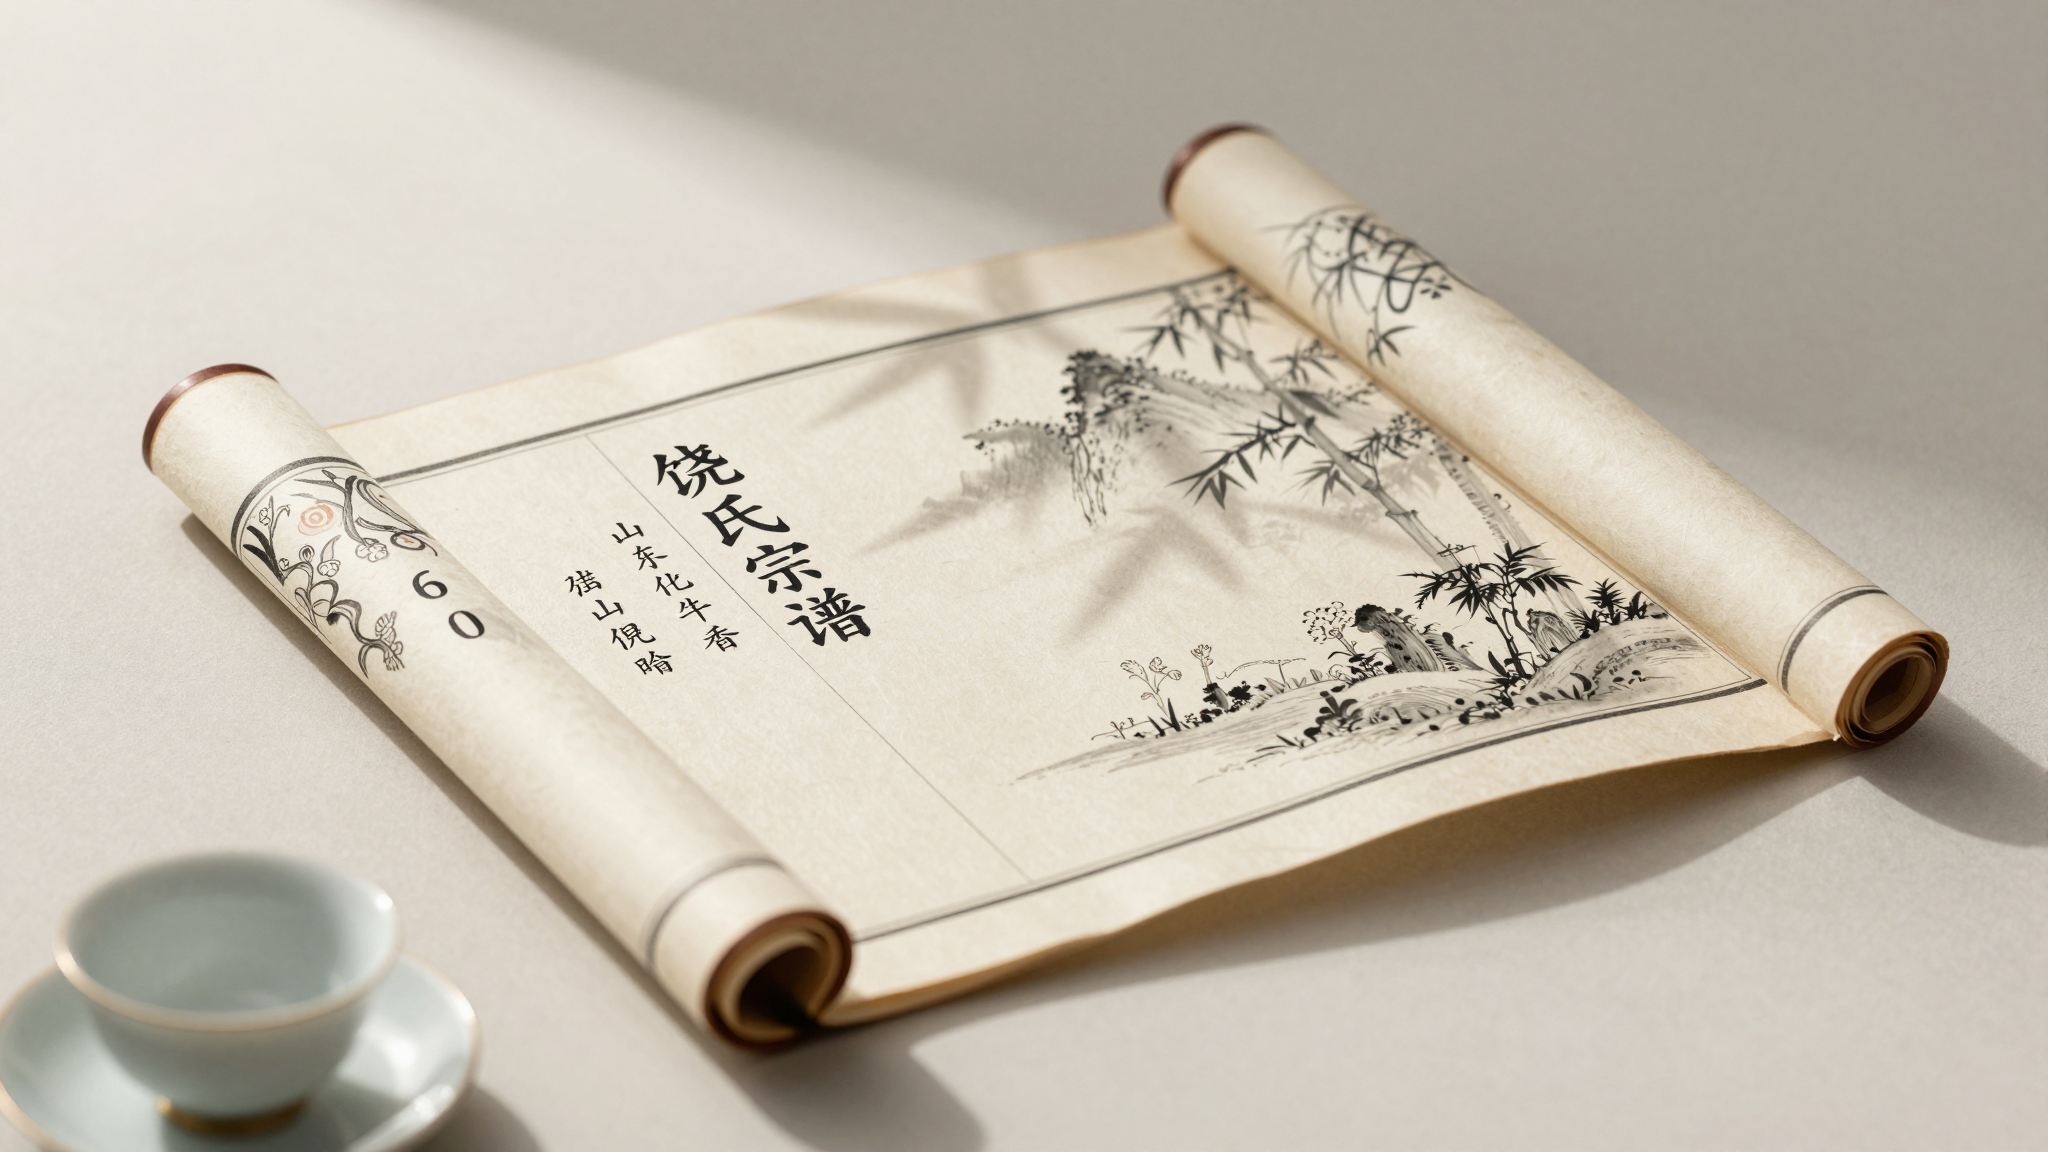 饶氏宗谱
山东化牛香
山倪
60